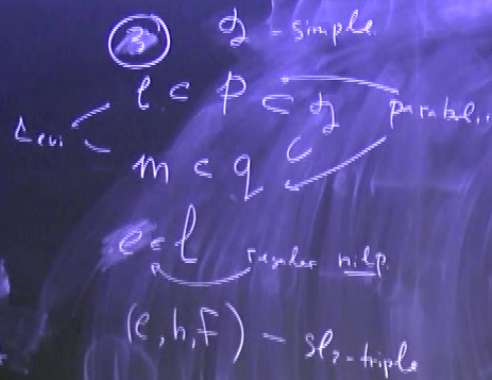 3 g - simple
l ⊂ p ⊂ g parabol.
Levi
m ⊂ q ⊂
e ∈ l regular nilp.
(e, h, f) - sl₂-triple